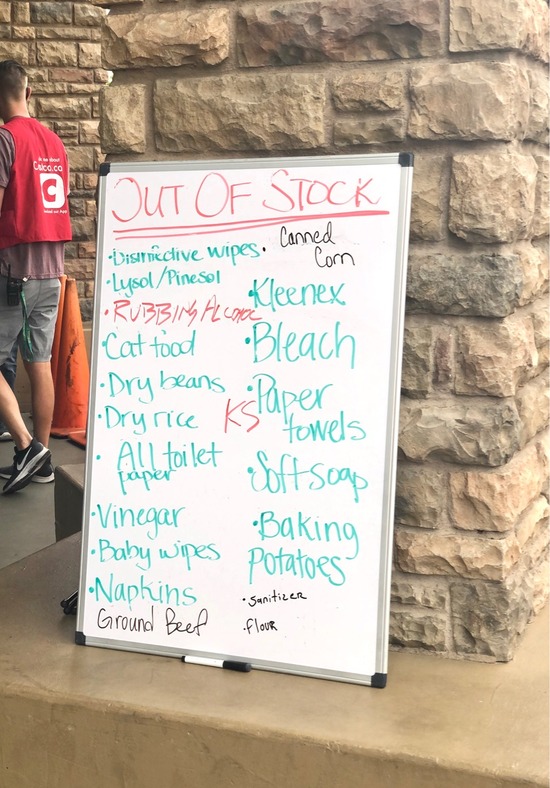 OUT OF STOCK
• Disinfective wipes
• Lysol/Pinesol
• RUBBING Alcohol
• Cat food
• Dry beans
• Dry rice
• All toilet
paper
• Vinegar
• Baby wipes
• Napkins
Ground Beef
• Canned
Corn
• Kleenex
• Bleach
KS • Paper
towels
• Soft soap
• Baking
Potatoes
• Sanitizer
• Flour
C